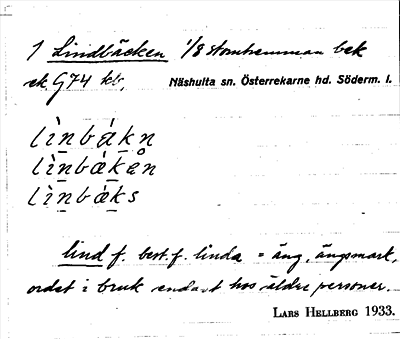 1 Lindbäcken 1/8 stomhemman bek
ek. G74 kbr,
Näshulta sn. Österrekarne hd. Söderm. l.
lìnbákn
lìnbákan
lìnbáks
lind f. best. f. linda = äng, ängsmark,
ordet i bruk endast hos äldre personer.
LARS HELLBERG 1933.